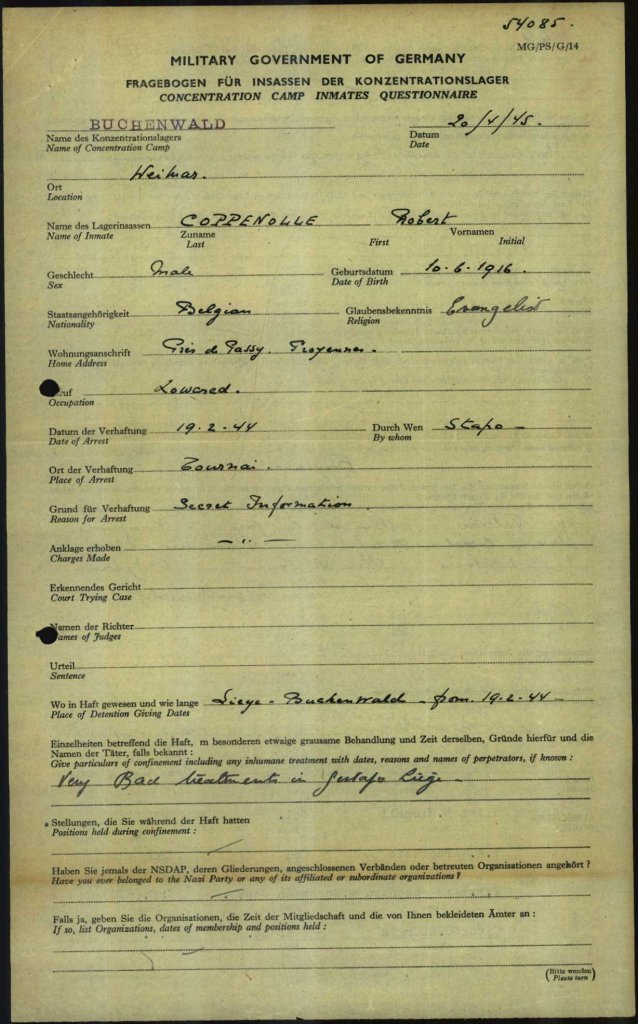 54085.
MG/PS/G/14
MILITARY GOVERNMENT OF GERMANY
FRAGEBOGEN FÜR INSASSEN DER KONZENTRATIONSLAGER
CONCENTRATION CAMP INMATES QUESTIONNAIRE
BUCHENWALD 20/4/45.
Name des Konzentrationslagers Datum
Name of Concentration Camp Date
Weimar.
Ort
Location
Name des Lagerinsassen COPPENOLLE Robert
Name of Inmate Zuname Vornamen
Last First Initial
Geschlecht Male Geburtsdatum 10-6-1916.
Sex Date of Birth
Staatsangehörigkeit Belgian Glaubensbekenntnis Evangelist
Nationality Religion
Wohnungsanschrift de
Home Address
ruf
Occupation
Datum der Verhaftung 19-2-44 Durch Wen Stapo -
Date of Arrest By whom
Ort der Verhaftung Tournai.
Place of Arrest
Grund für Verhaftung Secret Information.
Reason for Arrest
Anklage erhoben — " —
Charges Made
Erkennendes Gericht
Court Trying Case
Namen der Richter
ames of Judges
Urteil
Sentence
Wo in Haft gewesen und wie lange Liege - Buchenwald - from 19-2-44 -
Place of Detention Giving Dates
Einzelheiten betreffend die Haft, m besonderen etwaige grausame Behandlung und Zeit derselben, Gründe hierfür und die
Namen der Täter, falls bekannt :
Give particulars of confinement including any inhumane treatment with dates, reasons and names of perpetrators, if known :
Very Bad treatments in Gestapo Liege -
Stellungen, die Sie während der Haft hatten
Positions held during confinement :
Haben Sie jemals der NSDAP, deren Gliederungen, angeschlossenen Verbänden oder betreuten Organisationen angehört ?
Have you ever belonged to the Nazi Party or any of its affiliated or subordinate organizations ?
Falls ja, geben Sie die Organisationen, die Zeit der Mitgliedschaft und die von Ihnen bekleideten Ämter an :
If so, list Organizations, dates of membership and positions held :
(Bitte wenden)
Please turn